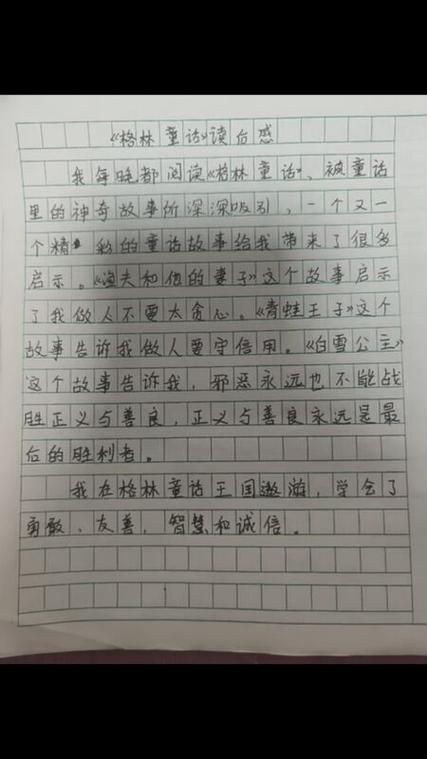 《格林童话》读后感
我每晚都阅读《格林童话》、被童话
里的神奇故事所深深吸引，一个又一
个精彩的童话故事给我带来了很多
启示。《渔夫和他的妻子》这个故事启示
了我做人不要太贪心。《青蛙王子》这个
故事告诉我做人要守信用。《白雪公主》
这个故事告诉我，邪恶永远也不能战
胜正义与善良，正义与善良永远是最
后的胜利者。
我在格林童话王国遨游，学会了
勇敢、友善，智慧和诚信。